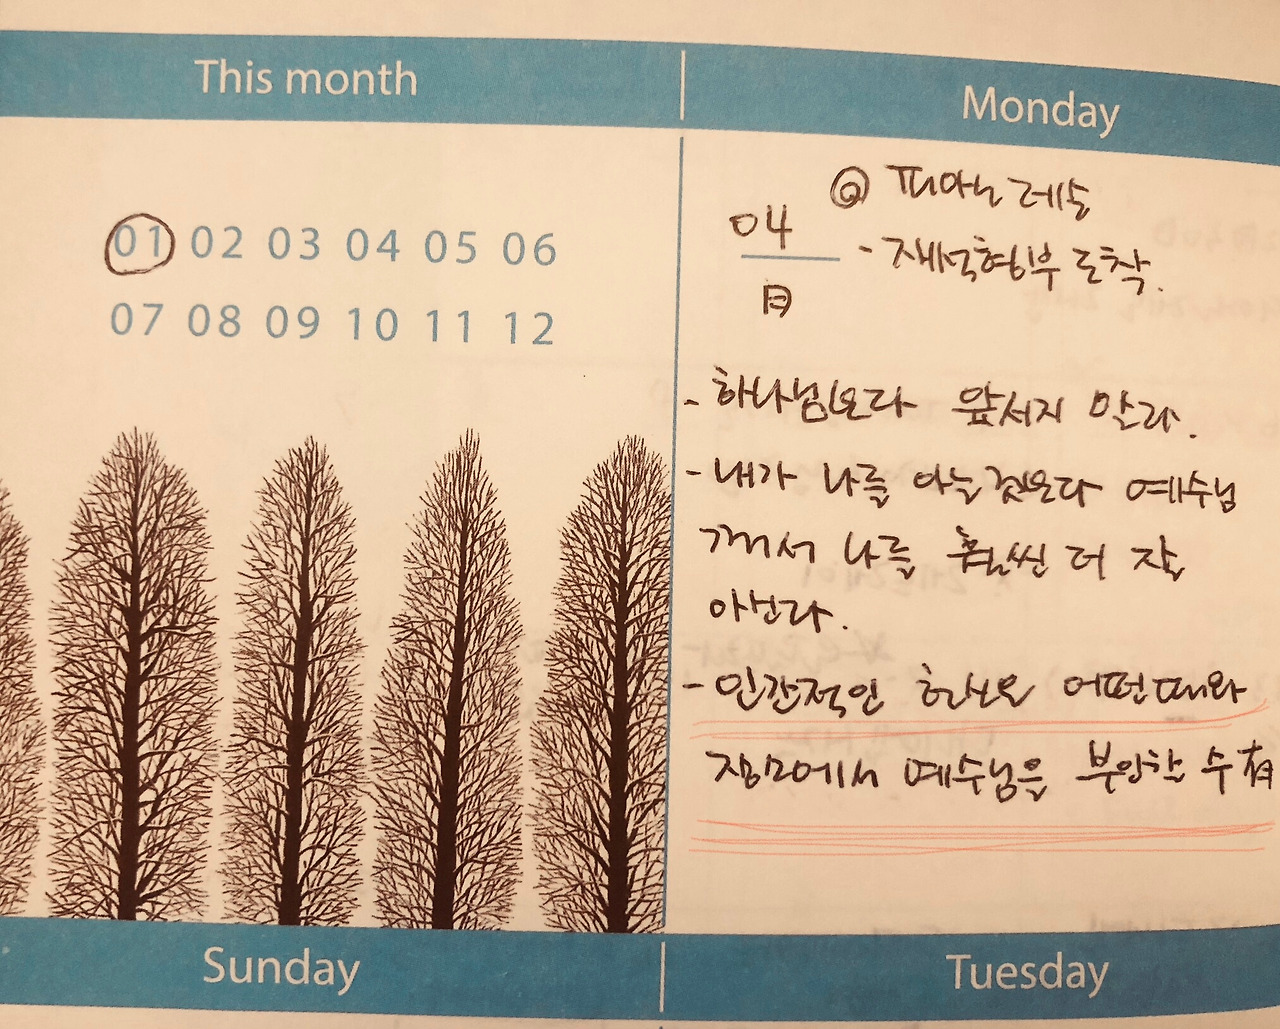 This month
01 02 03 04 05 06
07 08 09 10 11 12
Monday
04
月
◎ 피아노 레슨
- 재석형부 도착.
- 하나님보다 앞서지 말라.
- 내가 나를 아는것보다 예수님
께서 나를 훨씬 더 잘
아신다.
- 인간적인 헌신은 어떤때와
장소에서 예수님을 부인할 수 有
Sunday
Tuesday